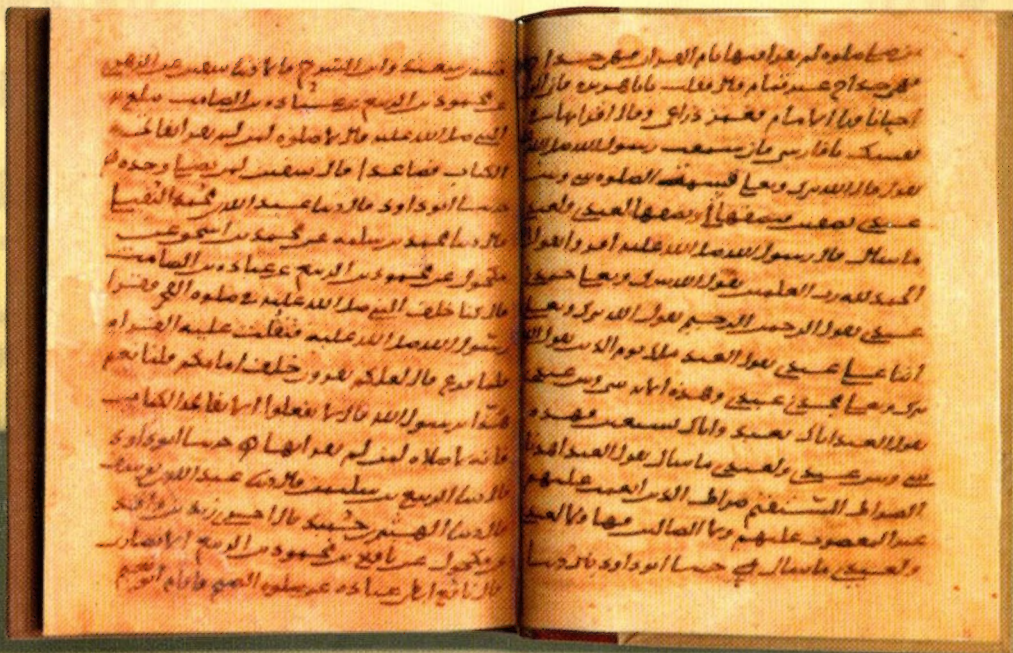 من صلى صلوه لم يقرا فيها بام القران فهي خداج
فهي خداج غير تمام قال فقلت يابا هريره فاني
احيانا ورا الامام فغمز ذراعي وقال اقرا بها في
نفسك يا فارسي فاني سمعت رسول الله صلى الله
يقول قال الله تبرك وتعلى قسمت الصلوه بيني وبين
عبدي نصفين فنصفها لي ونصفها لعبدي ولعبدي
ما سال قال رسول الله صلى الله عليه اقروا يقول
الحمد لله رب العلمين يقول الله تبرك وتعلى حمدني
عبدي يقول الرحمن الرحيم يقول الله تبرك وتعلى
اثنا علي عبدي يقول العبد ملك يوم الدين يقول الله
تبرك وتعلى مجدني عبدي وهذه الايه بيني وبين عبدي
يقول العبد اياك نعبد واياك نستعين فهذه
بيني وبين عبدي ولعبدي ما سال يقول العبد اهدنا
الصراط المستقيم صراط الذين انعمت عليهم
غير المغضوب عليهم ولا الضالين فهاولا لعبدي
ولعبدي ما سال حدثنا ابو داود قال وحدثنا
قتيبه بن سعيد وابن السرح قالا حدثنا سفين عن الزهري
عن محمود بن الربيع عن عباده بن الصامت يبلغ به
النبي صلى الله عليه قال لا صلوه لمن لم يقرا بفاتحه
الكتاب فصاعدا قال سفين لمن يصلي وحده
حدثنا ابو داود قال حدثنا عبد الله بن محمد النفيلي
قال حدثنا محمد بن سلمه عن محمد بن اسحق عن
مكحول عن محمود بن الربيع عن عباده بن الصامت
قال كنا خلف النبي صلى الله عليه في صلوه الفجر فقرا
رسول الله صلى الله عليه فثقلت عليه القراه
فلما فرغ قال لعلكم تقرون خلف امامكم قلنا نعم
هذا يرسول الله قال لا تفعلوا الا بفاتحه الكتاب
فانه لا صلاه لمن لم يقرا بها حدثنا ابو داود
قال حدثنا الربيع بن سليمن قال حدثنا عبد الله بن يوسف
قال حدثنا الهيثم بن حميد قال اخبرني زيد بن واقد
عن مكحول عن نافع بن محمود بن الربيع الانصاري
قال نافع ابطا عباده عن صلوه الصبح فاقام ابو نعيم